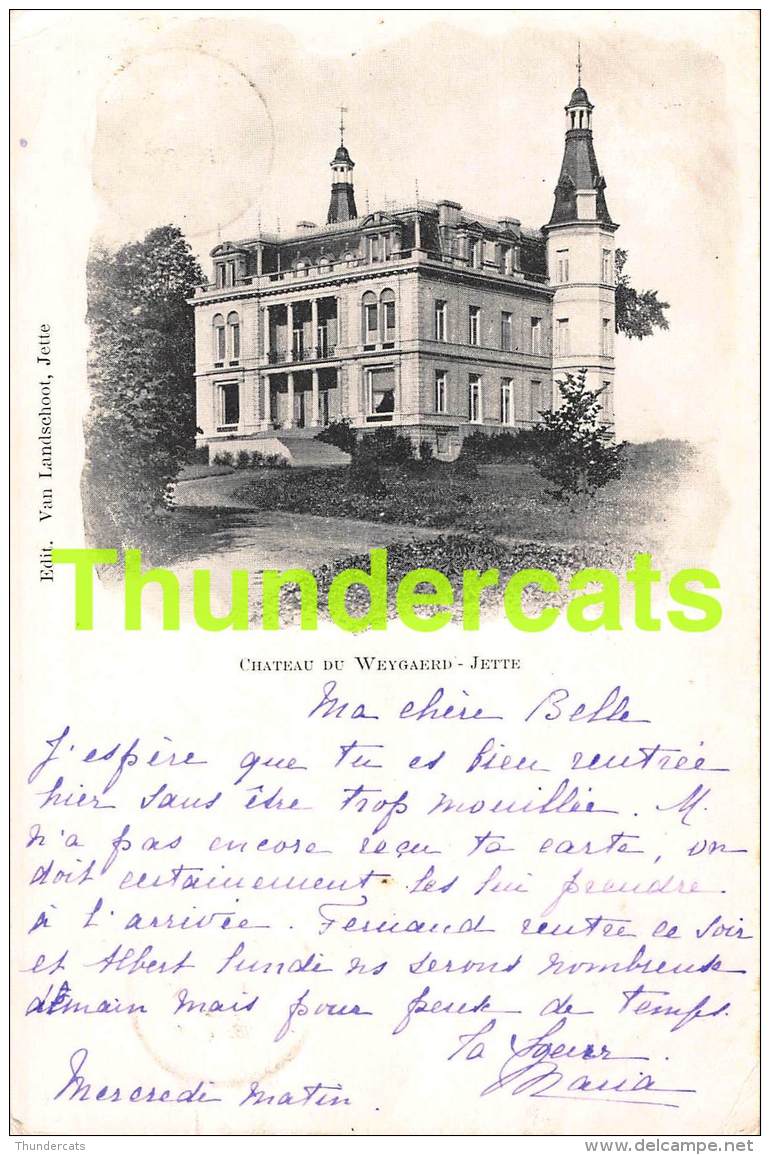 Edit. Van Landschoot, Jette
Thundercats
CHATEAU DU WEYGAERD - JETTE
Ma chère Belle
J'espère que tu es bien rentrée
hier sans être trop mouillée. M.
n'a pas encore reçu ta carte, on
doit certainement les lui prendre
à l'arrivée. Fernand rentre ce soir
et Albert lundi ns serons nombreuse
demain mais pour peux de temps.
ta Soeur.
Maria
Mercredi matin.
Thundercats
delcampe.net